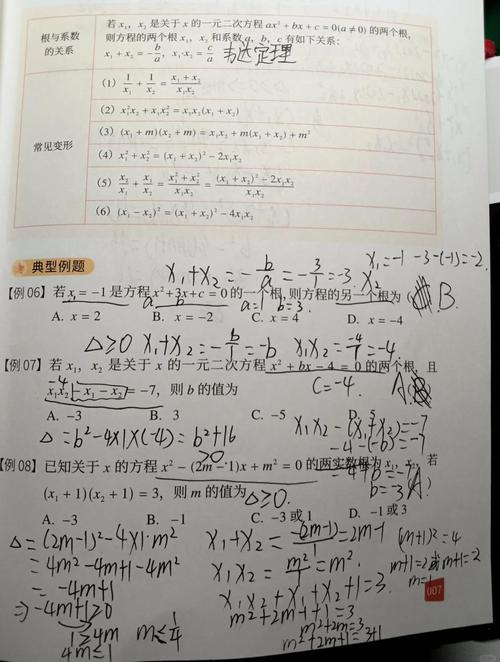 根与系数的关系
若 x₁, x₂ 是关于 x 的一元二次方程 ax²+bx+c=0(a≠0) 的两个根,
则方程的两个根 x₁, x₂ 和系数 a, b, c 有如下关系:
x₁+x₂=-b/a, x₁·x₂=c/a 韦达定理
常见变形
(1) 1/x₁+1/x₂=(x₁+x₂)/(x₁x₂)
(2) x₁²x₂+x₁x₂²=x₁x₂(x₁+x₂)
(3) (x₁+m)(x₂+m)=x₁x₂+m(x₁+x₂)+m²
(4) x₁²+x₂²=(x₁+x₂)²-2x₁x₂
(5) x₂/x₁+x₁/x₂=(x₁²+x₂²)/(x₁x₂)=((x₁+x₂)²-2x₁x₂)/(x₁x₂)
(6) (x₁-x₂)²=(x₁+x₂)²-4x₁x₂
典型例题
x₁+x₂=-b/a=-3/1=-3
x₁=-1 -3-(-1)=-2
x₂
【例 06】若 x₁=-1 是方程 x²+3x+c=0 的一个根, 则方程的另一个根为 ( B.
a=1 b=3
A. x=2 B. x=-2 C. x=4 D. x=-4
△≥0 x₁+x₂=-b/1=-b x₁x₂=-4/1=-4
【例 07】若 x₁, x₂ 是关于 x 的一元二次方程 x²+bx-4=0 的两个根, 且
-4
x₁x₂-x₁-x₂=-7, 则 b 的值为
C=-4 A
A. -3 B. 3 C. -5 D. 5
△=b²-4×1×(-4)=b²+16
>0
x₁x₂-(x₁+x₂)=-7
-4-(-b)=-7
-4+b=-7
b=-3 (A)
【例 08】已知关于 x 的方程 x²-(2m-1)x+m²=0 的两实数根为 x₁, x₂, 若
(x₁+1)(x₂+1)=3, 则 m 的值为 △≥0.
A. -3 B. -1 C. -3 或 1 D. -1 或 3
△=(2m-1)²-4×1·m²
=4m²-4m+1-4m²
=-4m+1
⇒-4m+1≥0
1≥4m
4m≤1
m≤1/4
x₁+x₂=-(2m-1)/1=2m-1
x₁x₂=m²/1=m².
x₁x₂+x₁+x₂+1=3
m²+2m-1+1=3
m²+2m=3
m²+2m+1=3+1
(m+1)²=4
m+1=2或m+1=-2
m=1
007